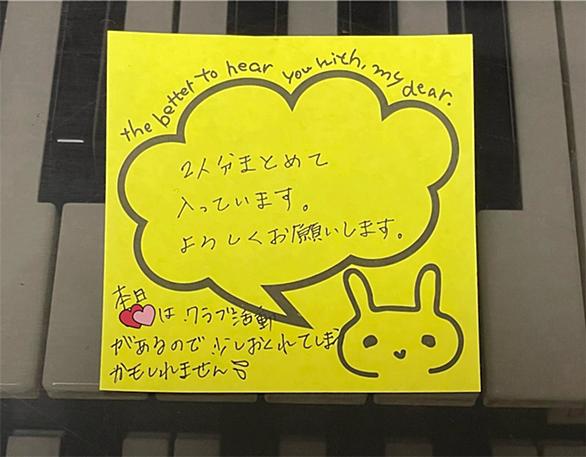 the better to hear you with, my dear.
2人分まとめて
入っています。
よろしくお願いします。
本日
は クラブ活動
があるので 少しおくれてしまう
かもしれません